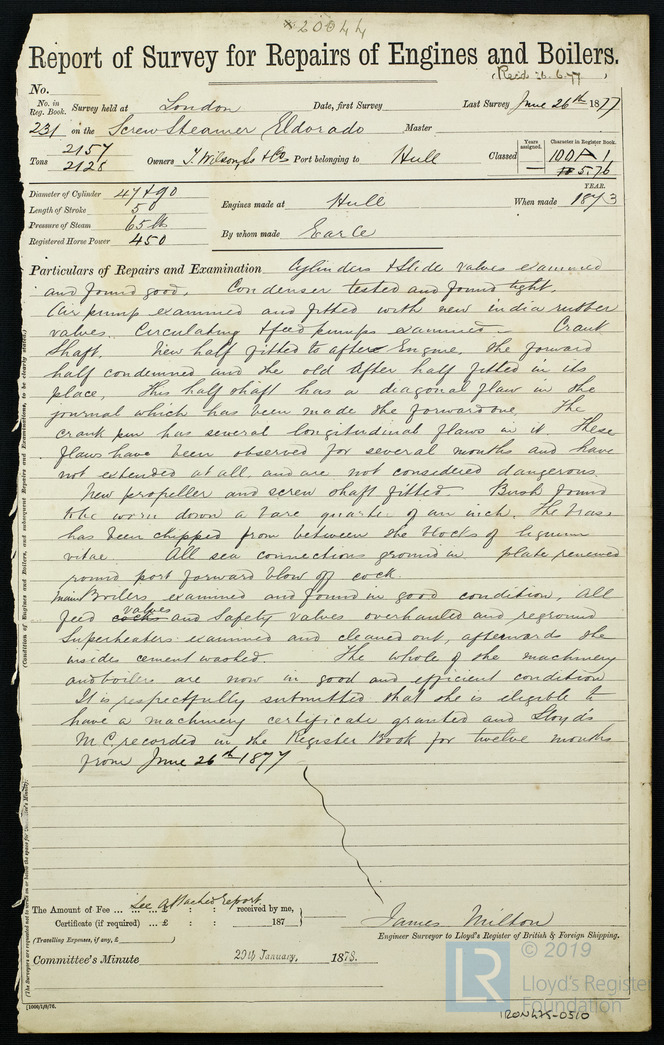 20044
Report of Survey for Repairs of Engines and Boilers.
(Recd 26.6.77)
No.
No. in Reg. Book. Survey held at London Date, first Survey Last Survey June 26th 1877
231 on the Screw Steamer Eldorado Master
Tons 2157 2128 Owners T. Wilson, Sons & Co Port belonging to Hull Classed Years assigned. — Character in Register Book. 100 A 1 5.76
Diameter of Cylinder 47 & 90
Length of Stroke 50
Pressure of Steam 65 lb
Registered Horse Power 450
Engines made at Hull When made YEAR. 1873
By whom made Earle
Particulars of Repairs and Examination Cylinders & Slide valves examined
and found good. Condenser tested and found tight.
Air pump examined and fitted with new india rubber
valves. Circulating & feed pumps examined. Crank
Shaft. New half fitted to after Engine, the forward
half condemned and the old after half fitted in its
place, this half shaft has a diagonal flaw in the
journal which has been made the forward one. The
crank pin has several longitudinal flaws in it. These
flaws have been observed for several months and have
not extended at all, and are not considered dangerous.
New propeller and screw shaft fitted. Bush found
to be worn down a bare quarter of an inch. The brass
has been chipped from between the blocks of lignum
vitae. All sea connections ground in plate renewed
round port forward blow off cock.
Main Boilers examined and found in good condition. All
feed cocks valves and Safety valves overhauled and reground
Superheaters examined and cleaned out, afterwards the
insides cement washed. The whole of the machinery
and boilers are now in good and efficient condition
It is respectfully submitted that she is eligible to
have a machinery certificate granted and Lloyd's
M C, recorded in the Register Book for twelve months
from June 26th 1877
(Condition of Engines and Boilers, and subsequent Repairs and Examinations, to be clearly stated.)
The Amount of Fee ... £ : : received by me,
See attached report
Certificate (if required) ... £ : : 187
(Travelling Expenses, if any, £ )
James Milton
Engineer Surveyor to Lloyd's Register of British & Foreign Shipping.
Committee's Minute 29th January, 1878.
LR © 2019
Lloyd's Register
Foundation
IRON475-0510